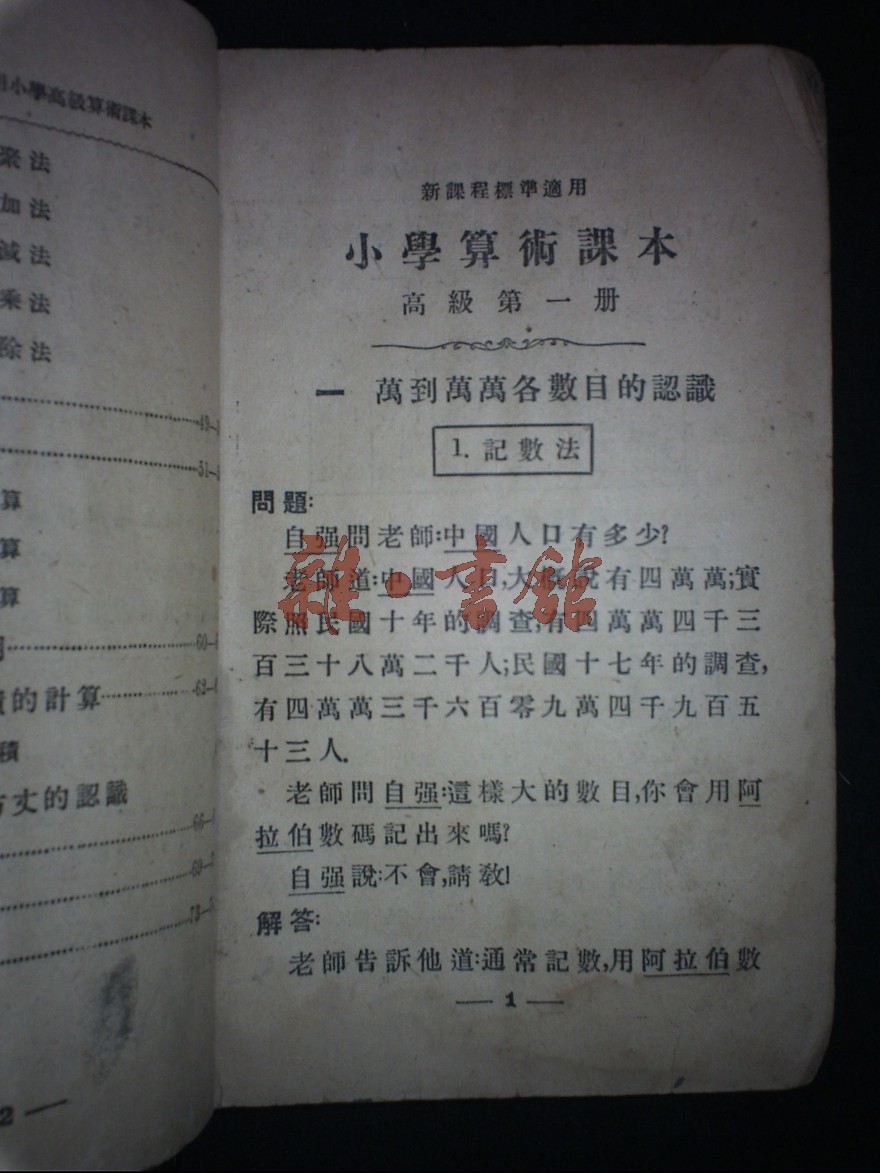 用小學高級算術課本
聚法
加法
減法
乘法
除法
49-
51-5
算
算
算
60-6
的計算 62-6
積
方丈的認識
66-
69-7
73-
2
新課程標準適用
小學算術課本
高級第一册
一 萬到萬萬各數目的認識
1. 記數法
問題:
自强問老師:中國人口有多少?
老師道:中國人口,大概說有四萬萬;實
際照民國十年的調查,有四萬萬四千三
百三十八萬二千人;民國十七年的調查,
有四萬萬三千六百零九萬四千九百五
十三人.
老師問自强:這樣大的數目,你會用阿
拉伯數碼記出來嗎?
自强說:不會,請教!
解答:
老師告訴他道:通常記數,用阿拉伯數
— 1 —
雜·書館